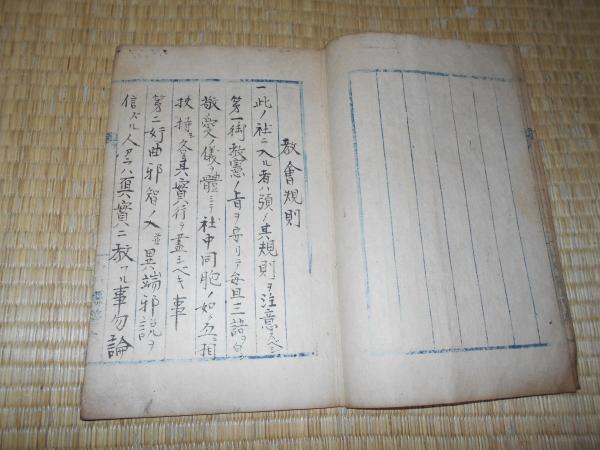 教會規則
一此ノ社ニ入ル者ハ須ノ其規則ヲ注意スベシ
第一御教憲ノ旨ヲ守リテ毎旦三語ヲ白シ
敬愛ノ儀ヲ體ニシテ社中同胞ノ如ク互ニ相
扶持シ各其實行ヲ盡スベキ事
第二奸曲邪智ノ人並異端邪説ヲ
信ズル人アラハ眞實ニ教フル事勿論